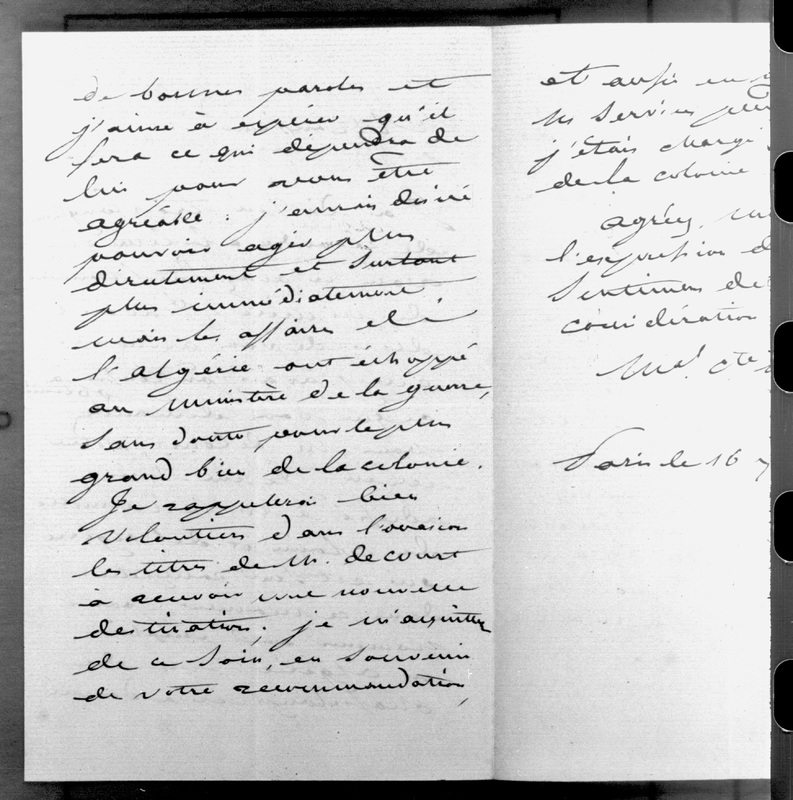 de bonnes paroles et
j'aime à espérer qu'il
fera ce qui dépendra de
lui pour vous être
agréable : j'aurais désiré
pouvoir agir plus
directement et surtout
plus immédiatement
mais les affaires de
l'algérie ont échappé
au ministère de la guerre,
sans doute pour le plus
grand bien de la colonie.
Je rappellerai bien
volontiers dans l'occasion
les titres de M. decourt
à recevoir une nouvelle
destination ; je m'acquitterai
de ce soin, en souvenir
de votre recommandation,
et aussi en
ses services
j'étais chargé
de la colonie
agréez,
l'expression
sentimens de
considération
Mal Cte
Paris le 16